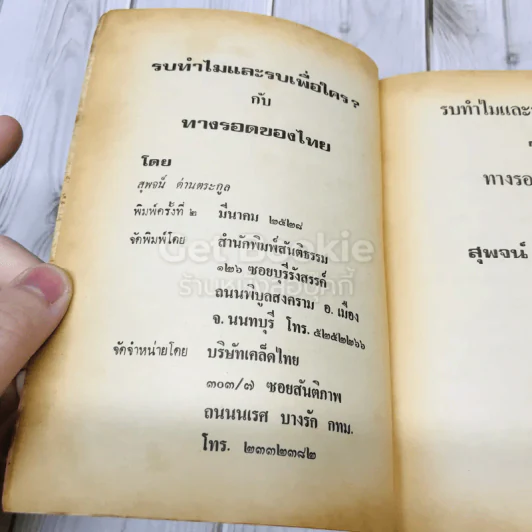 รบทำไมและรบเพื่อใคร?
กับ
ทางรอดของไทย
โดย
สุพจน์ ด่านตระกูล
พิมพ์ครั้งที่ ๒ มีนาคม ๒๕๒๘
จัดพิมพ์โดย สำนักพิมพ์สันติธรรม
๑๒๖ ซอยบุรีรังสรรค์
ถนนพิบูลสงคราม อ. เมือง
จ. นนทบุรี โทร. ๕๒๕๒๒๖๖
จัดจำหน่ายโดย บริษัทเคล็ดไทย
๓๐๓/๗ ซอยสันติภาพ
ถนนนเรศ บางรัก กทม.
โทร. ๒๓๓๒๓๘๒
รบทำไมและร
ทางรอ
สุพจน์
Get Bookie
ร้านหนังสือบุ๊คกี้